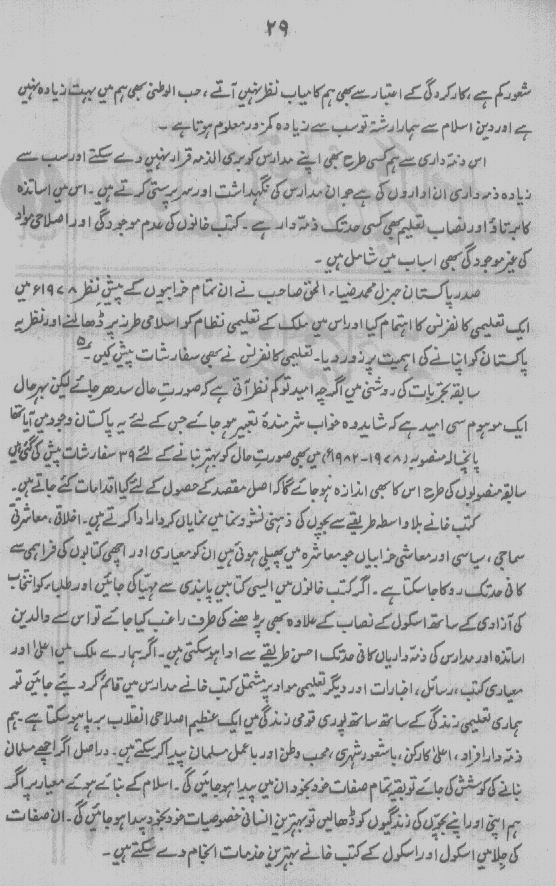 ۲۹
شعور کم ہے، کارکردگی کے اعتبار سے بھی ہم کامیاب نظر نہیں آتے، حب الوطنی بھی ہم میں بہت زیادہ نہیں
ہے اور دین اسلام سے ہمارا رشتہ تو سب سے زیادہ کمزور معلوم ہوتا ہے۔
اس ذمہ داری سے ہم کسی طرح بھی اپنے مدارس کو بری الذمہ قرار نہیں دے سکتے اور سب سے
زیادہ ذمہ داری ان اداروں کی ہے جو ان مدارس کی نگہداشت اور سرپرستی کرتے ہیں۔ اس میں اساتذہ
کا برتاؤ اور نصاب تعلیم بھی کسی حد تک ذمہ دار ہے۔ کتب خانوں کی عدم موجودگی اور اصلاحی مواد
کی غیر موجودگی بھی اسباب میں شامل ہیں۔
صدر پاکستان جنرل محمد ضیاء الحق صاحب نے ان تمام خرابیوں کے پیش نظر ۱۹۷۸ء میں
ایک تعلیمی کانفرنس کا اہتمام کیا اور اس میں ملک کے تعلیمی نظام کو اسلامی طرز پر ڈھالنے اور نظریہ
پاکستان کو اپنانے کی اہمیت پر زور دیا۔ تعلیمی کانفرنس نے بھی سفارشات پیش کیں۔
سابقہ تجربات کی روشنی میں اگرچہ امید تو کم نظر آتی ہے کہ صورت حال سدھر جائے لیکن بہرحال
ایک موہوم سی امید ہے کہ شاید وہ خواب شرمندۂ تعبیر ہو جائے جس کے لئے یہ پاکستان وجود میں آیا تھا
پانچسالہ منصوبہ (۱۹۷۸-۱۹۸۲ء) میں بھی صورت حال کو بہتر بنانے کے لئے ۳۹ سفارشات پیش کی گئی ہیں
سابقہ منصوبوں کی طرح اس کا بھی اندازہ ہو جائے گا کہ اصل مقصد کے حصول کے لئے کیا اقدامات کئے جاتے ہیں۔
کتب خانے بلاواسطہ طریقے سے بچوں کی ذہنی نشوونما میں نمایاں کردار ادا کرتے ہیں۔ اخلاقی، معاشرتی
سماجی، سیاسی اور معاشی خرابیاں جو معاشرہ میں پھیلی ہوئی ہیں ان کو معیاری اور اچھی کتابوں کی فراہمی سے
کافی حد تک روکا جا سکتا ہے۔ اگر کتب خانوں میں ایسی کتابیں پابندی سے مہیا کی جائیں اور طلباء کو انتخاب
کی آزادی کے ساتھ اسکول کے نصاب کے علاوہ بھی پڑھنے کی طرف راغب کیا جائے تو اس سے والدین
اساتذہ اور مدارس کی ذمہ داریاں کافی حد تک احسن طریقے سے ادا ہو سکتی ہیں۔ اگر ہمارے ملک میں اعلیٰ اور
معیاری کتب، رسائل، اخبارات اور دیگر تعلیمی مواد پر مشتمل کتب خانے مدارس میں قائم کر دیئے جائیں تو
ہماری تعلیمی زندگی کے ساتھ ساتھ پوری قومی زندگی میں ایک عظیم اصلاحی انقلاب برپا ہو سکتا ہے۔ ہم
ذمہ دار افراد، اعلیٰ کارکن، باشعور شہری، محب وطن اور باعمل مسلمان پیدا کر سکتے ہیں۔ دراصل اگر اچھے مسلمان
بنانے کی کوشش کی جائے تو بقیہ تمام صفات خود بخود ان میں پیدا ہو جائیں گی۔ اسلام کے بنائے ہوئے معیار پر اگر
ہم اپنی اور اپنے بچوں کی زندگیوں کو ڈھالیں تو بہترین انسانی خصوصیات خود بخود پیدا ہو جائیں گی۔ ان صفات
کی جلا میں اسکول اور اسکول کے کتب خانے بہترین خدمات انجام دے سکتے ہیں۔